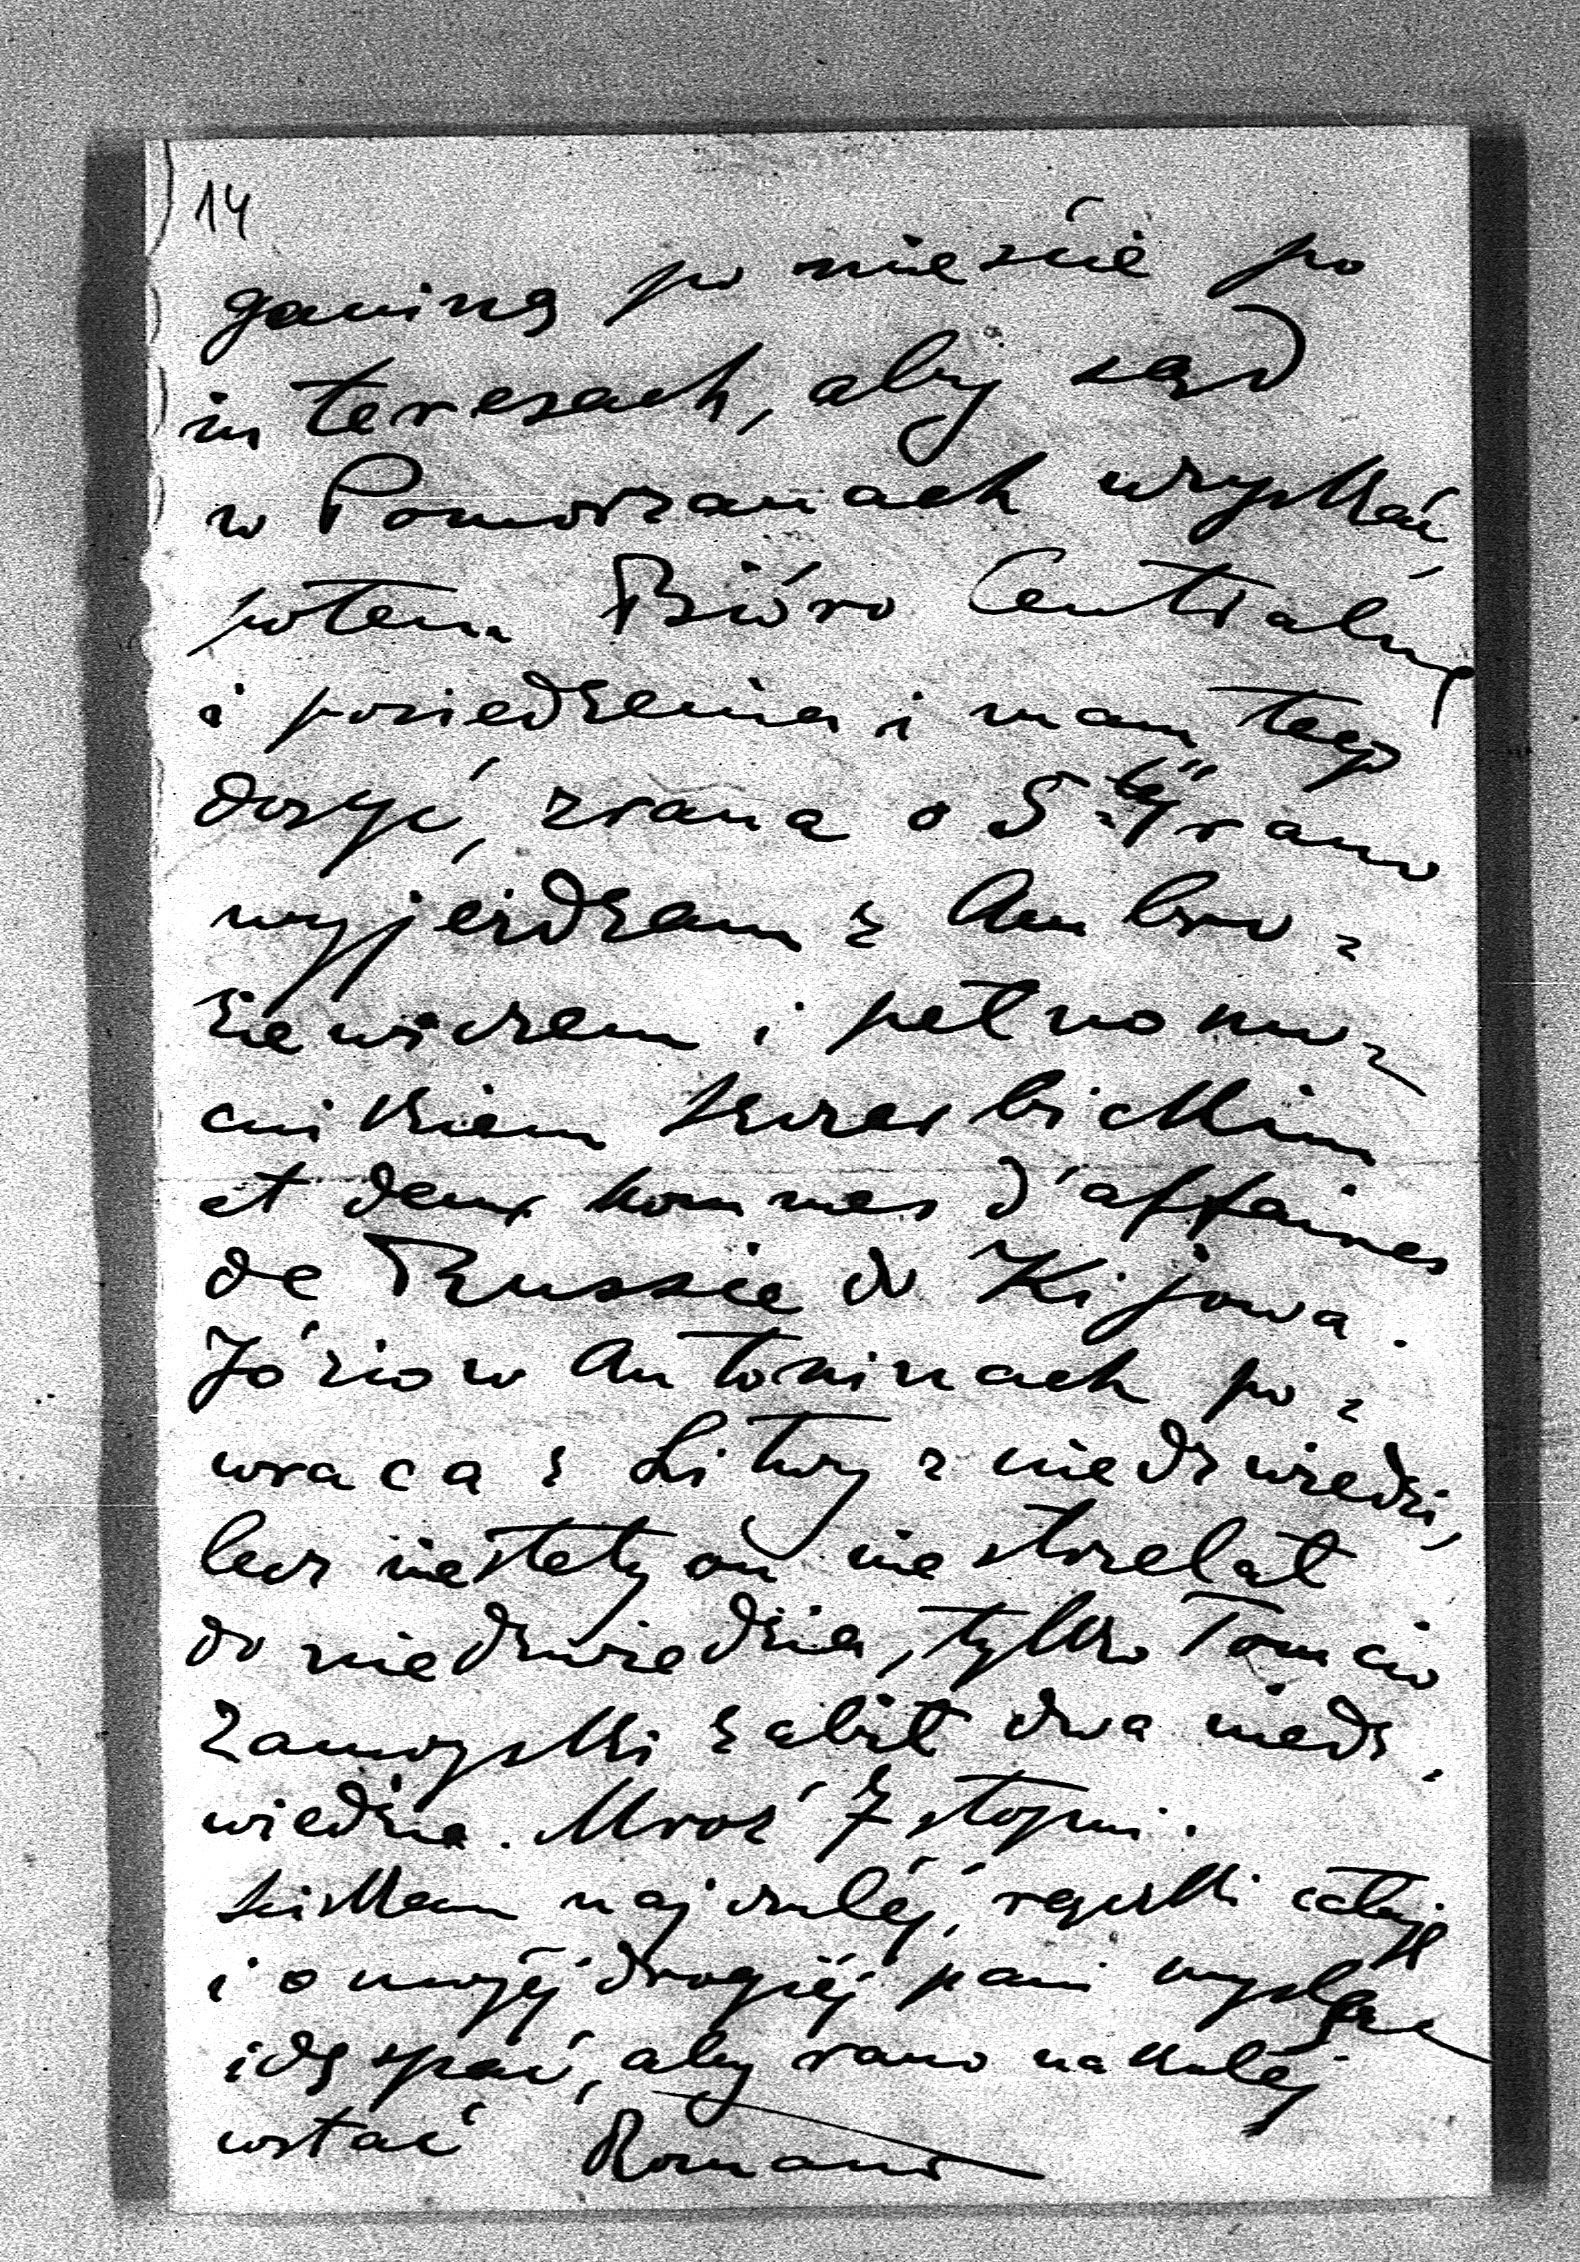 14
ganiną po mieście po
interesach, aby sąd
w Pomorzanach uzyskać,
potem Bióro Centralne
i posiedzenia i mam tego
dosyć, zrana o 5-téj rano
wyjeżdzam z Ambro-
ziewiczem i pełnomo-
cnikiem
et deux hommes d'affaires
de Russie do Kijowa.
Józio w Antoninach po-
wraca z Litwy z niedzwiedzi,
lecz niestety on nie strzelał
do niedzwiedzia, tylko Tomcio
Zamoyski zabił dwa niedz-
wiedzie. Mroz 7 stopni.
Sciskam najczuléj, rączki całuję
i o mojéj drogiéj pani myśląc
idę spać, aby rano na koléj
wstać Roman